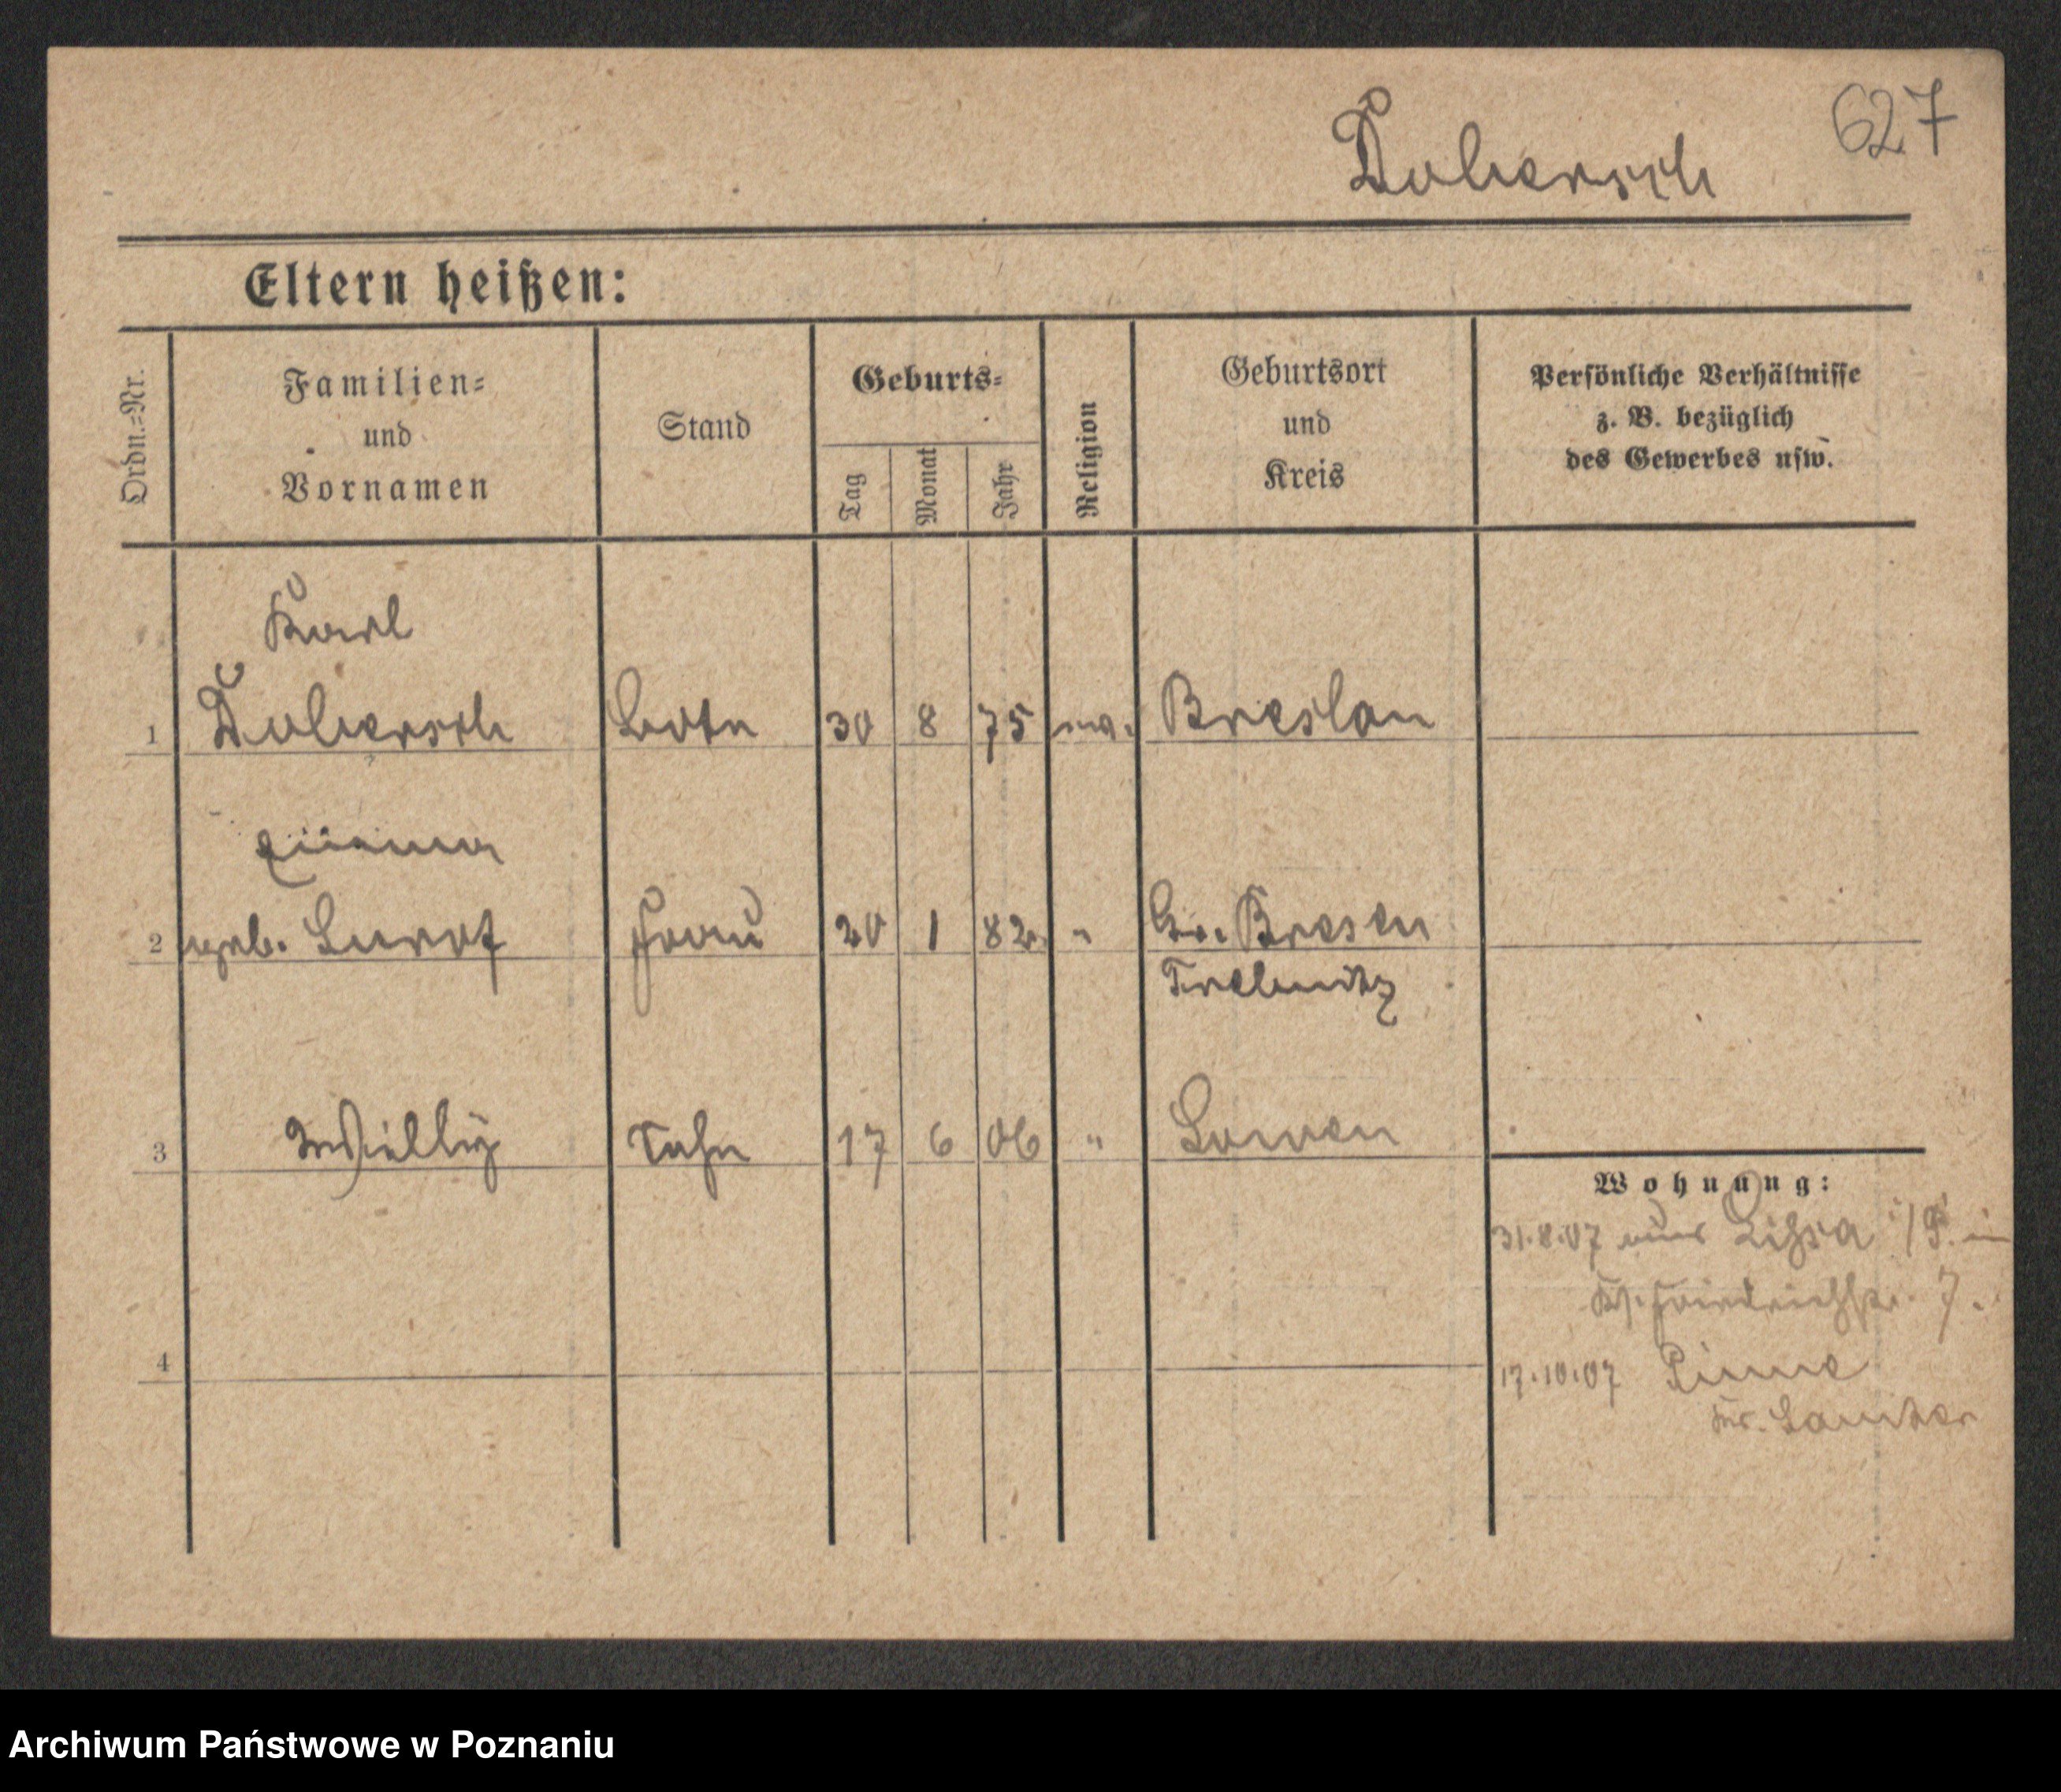 627
Dobersch
Eltern heißen:
Ordn.-Nr.
Familien-
und
Vornamen
Stand
Geburts-
Tag
Monat
Jahr
Religion
Geburtsort
und
Kreis
Persönliche Verhältnisse
z. B. bezüglich
des Gewerbes usw.
Karl
1 Dobersch 30 8 75 Breslau
2 geb. Frau 20 1 82 " Gr. Bresen
Trebnitz
3 Willy Sohn 17 6 06 " Lowen
Wohnung:
31.8.07 aus Lissa i/P. in
7.
4
17.10.07 Pinne
Kr. Samter
Archiwum Państwowe w Poznaniu